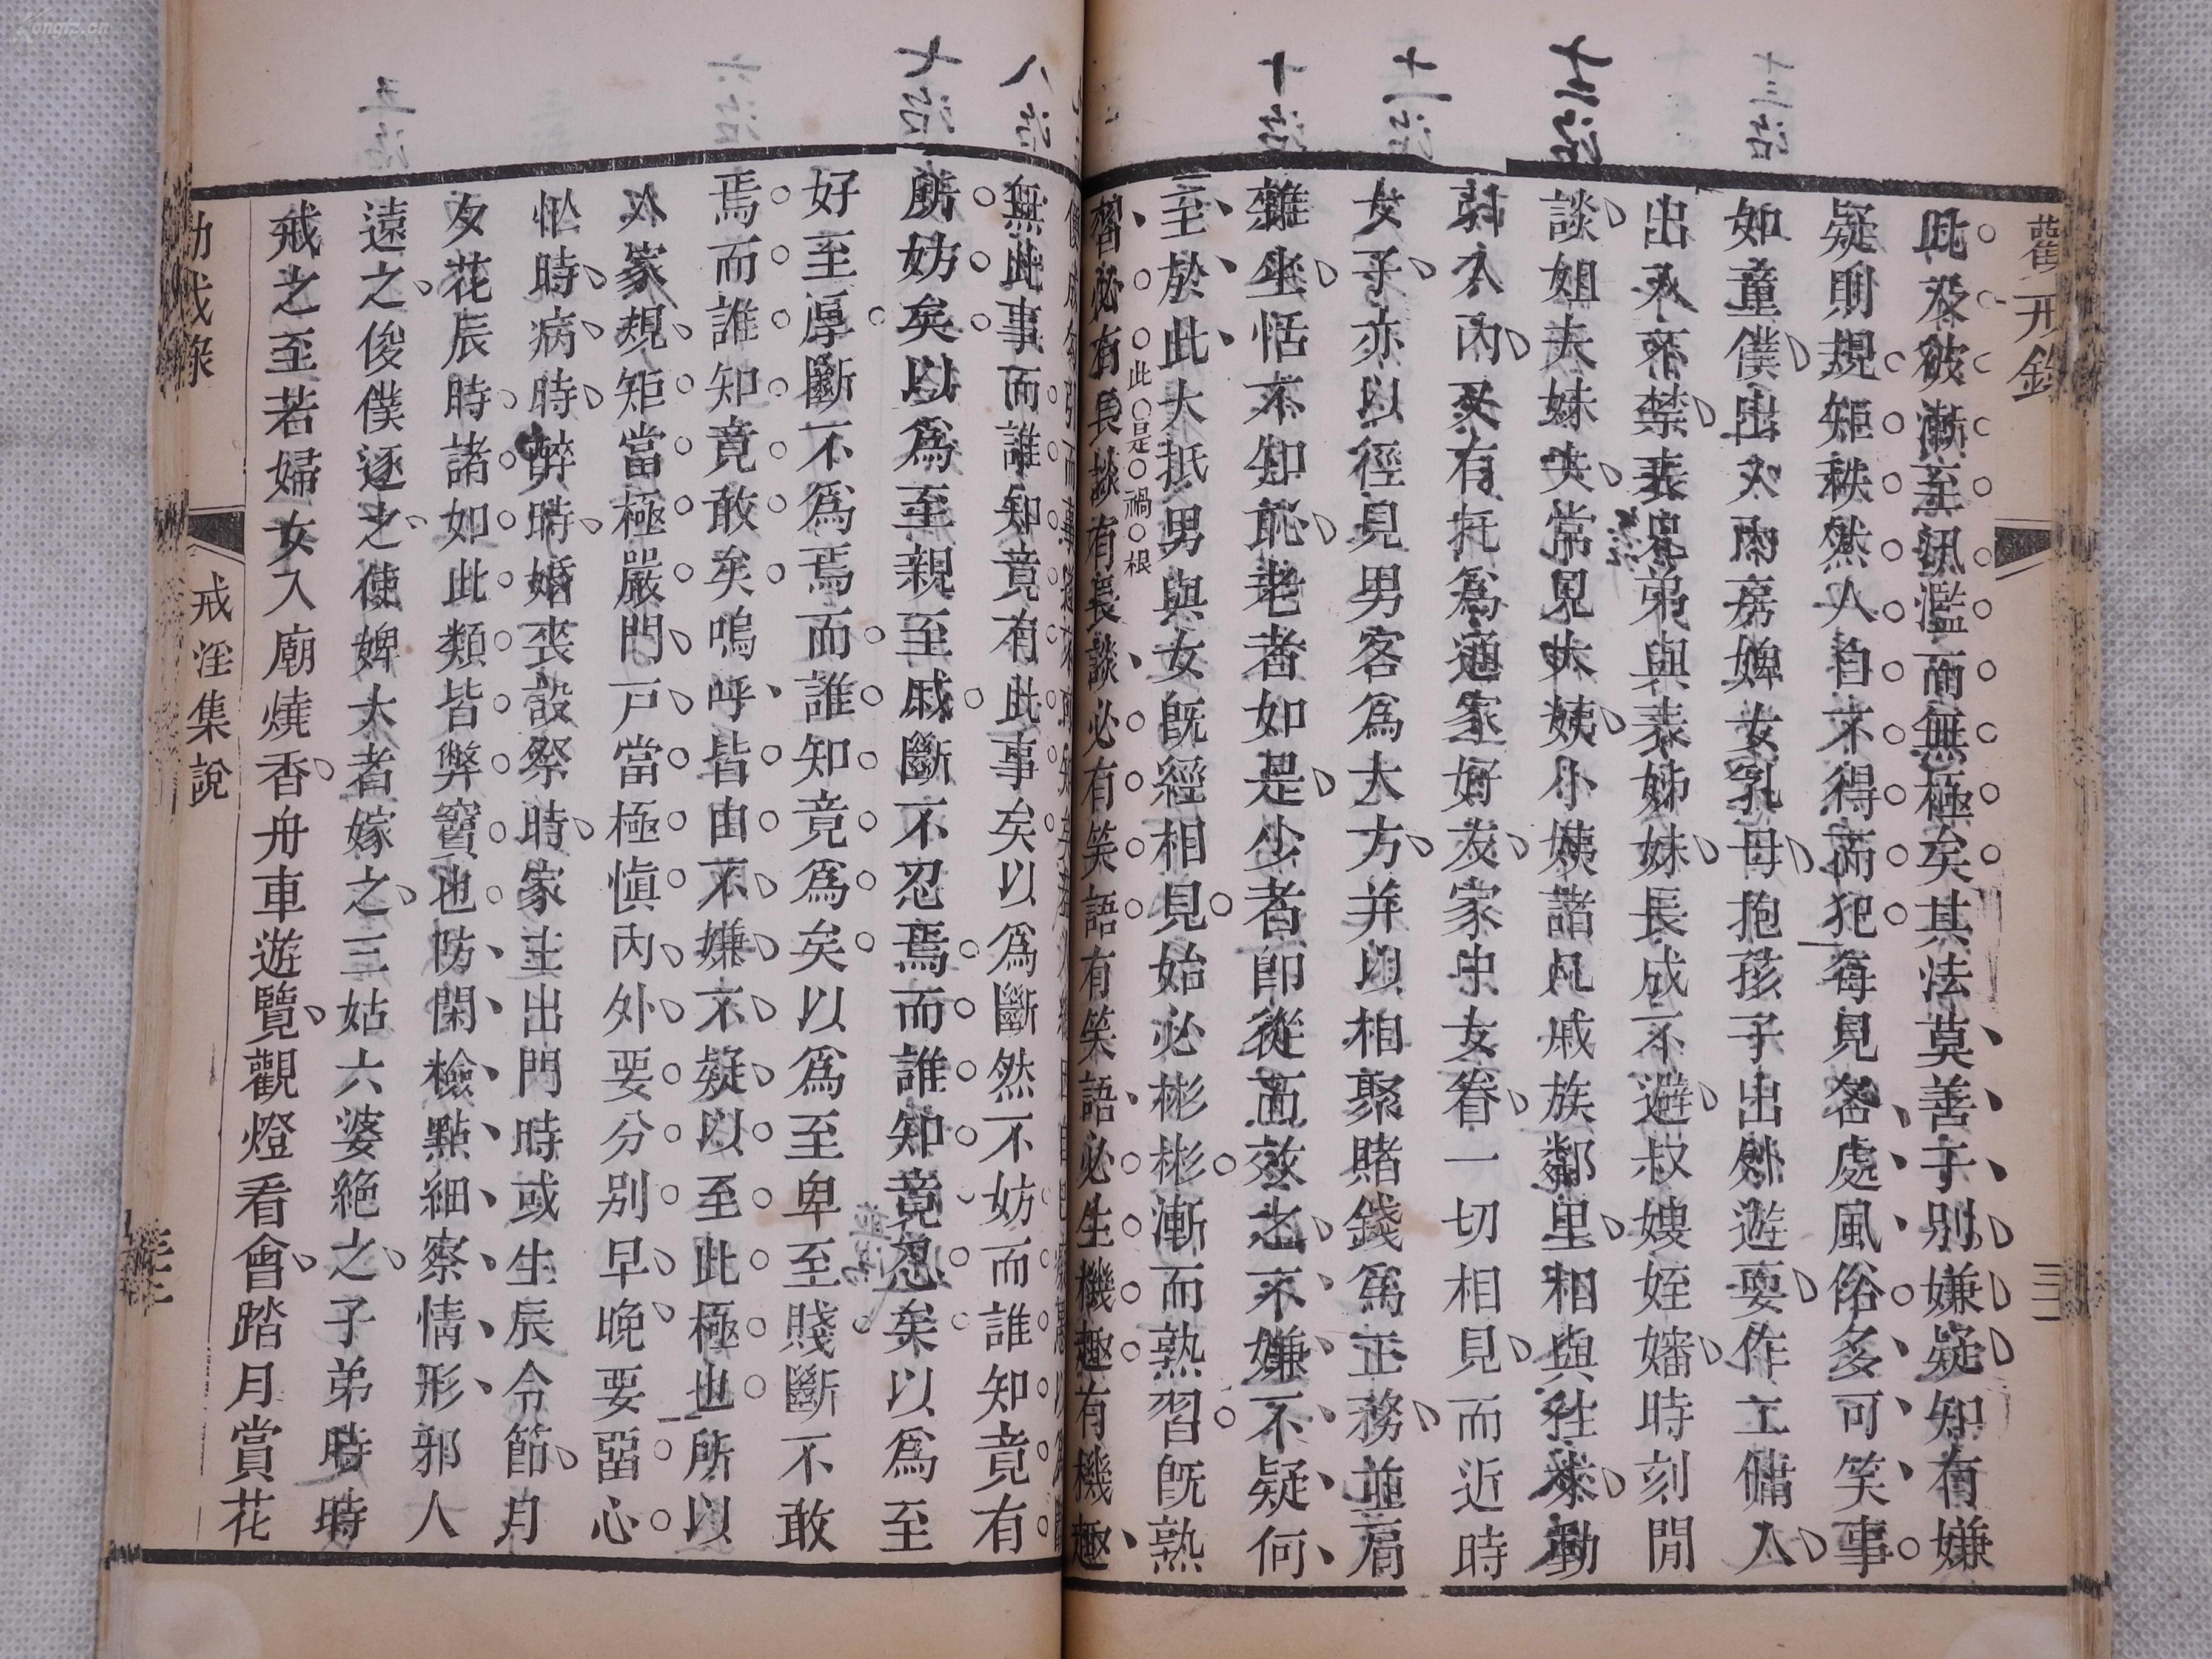 此及破漸至汎濫而無極矣其法莫善于別嫌疑知有嫌
疑則規矩秩然人自不得而犯每見各處風俗多可笑事
如童僕出入兩房婢女乳母抱孩子出外遊耍作工傭人
出入不禁表弟與表姊妹長成不避叔嫂姪嬸時刻閒
談姐夫妹夫常見大姨小姨諸凡戚族鄰里相與往來動
輒入內又有托爲通家好友家中女眷一切相見而近時
女子亦以徑見男客爲大方并與相聚賭錢爲正務並肩
雜坐恬不知恥老者如是少者卽從而效之不嫌不疑何
至於此大抵男與女旣經相見始必彬彬漸而熟習旣熟
此是禍根
習必有長談有長談必有笑語有笑語必生機趣有機趣
無此事而誰知竟有此事矣以爲斷然不妨而誰知竟有
所妨矣以爲至親至戚斷不忍焉而誰知竟忍矣以爲至
好至厚斷不爲焉而誰知竟爲矣以爲至卑至賤斷不敢
焉而誰知竟敢矣嗚呼皆由不嫌不疑以至此極也所以
人家規矩當極嚴門戶當極愼內外要分別早晚要畱心
忙時病時醉時婚喪設祭時家主出門時或生辰令節月
夕花辰時諸如此類皆弊竇也防閑檢點細察情形邪人
遠之俊僕逐之使婢大者嫁之三姑六婆絶之子弟時時
戒之至若婦女入廟燒香舟車遊覽觀燈看會踏月賞花
戒淫集說
三
十三治
十二治
十一治
十治
八治
七治
六治
五治